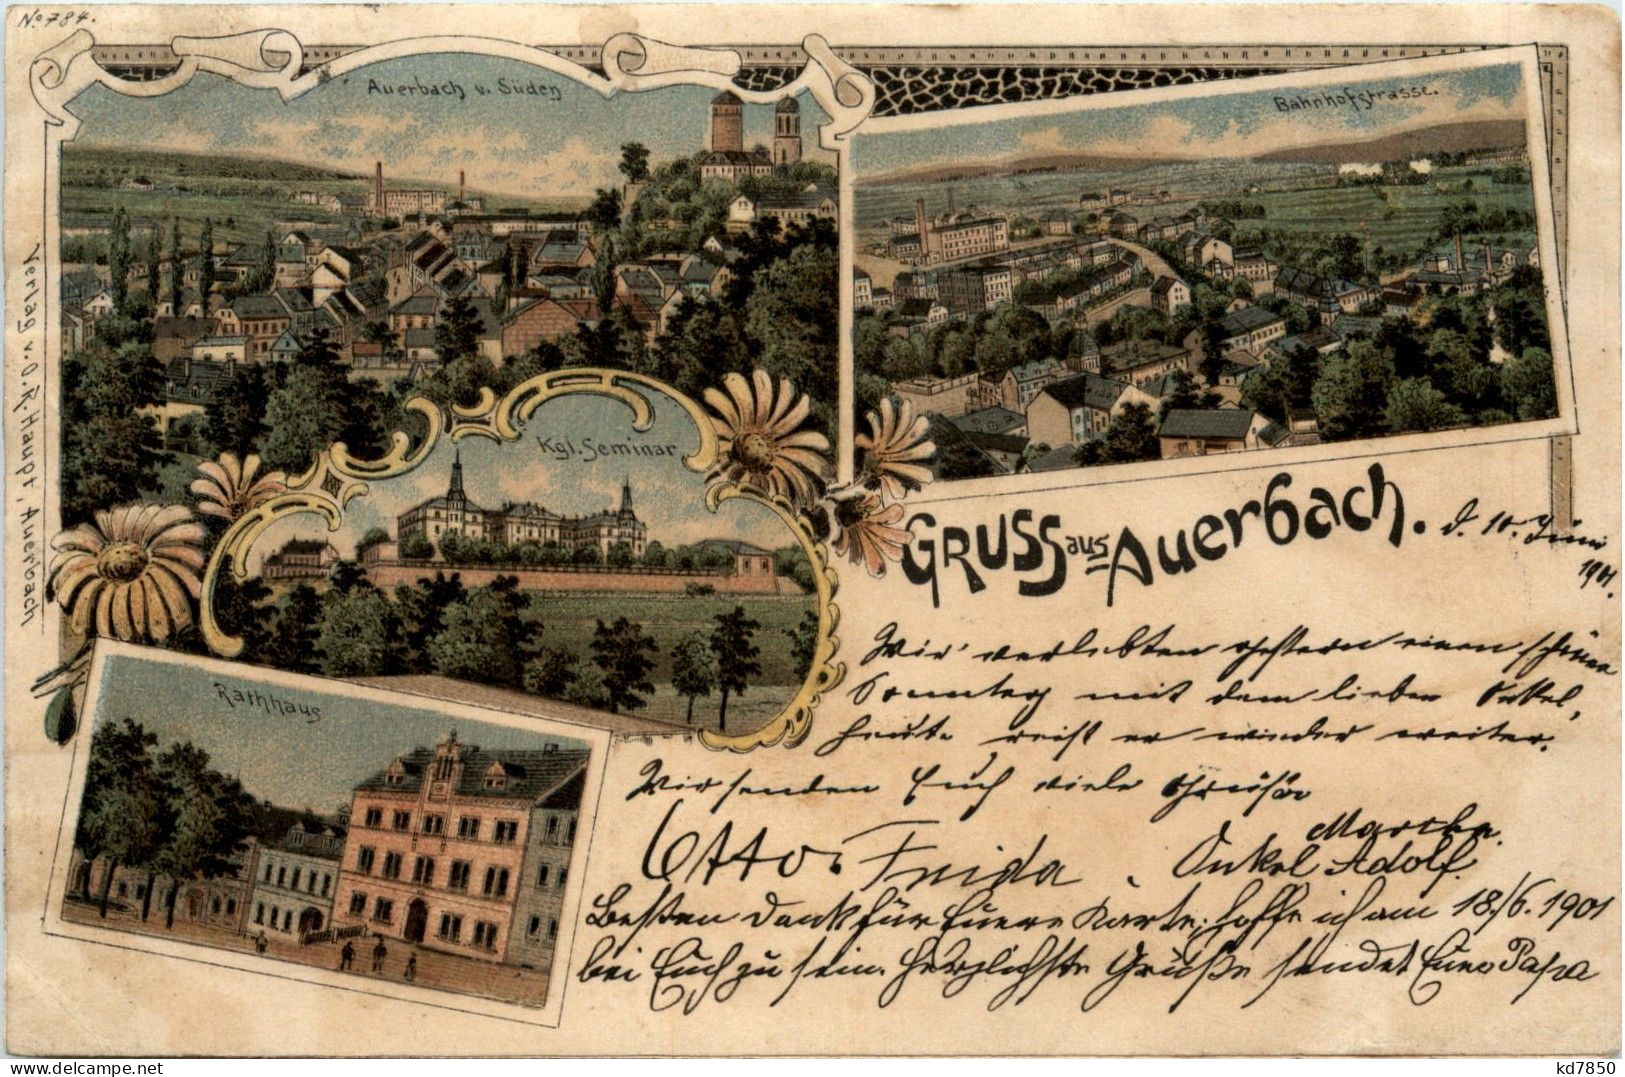 No 784.
Auerbach v. Süden
Bahnhofstrasse.
Kgl. Seminar
Rathhaus
Verlag v. O. R. Haupt, Auerbach
GRUSS aus Auerbach.
d. 10. Juni
1901.
Wir verlebten gestern einen schönen
Sonntag mit dem lieben Onkel,
heute reist er wieder weiter.
Wir senden Euch viele Grüße
Otto. Frida. Onkel Adolf.
Besten Dank für Euere Karte, hoffe ich am 18./6. 1901
bei Euch zu sein. Herzlichste Grüße sendet Euer Papa
kd7850